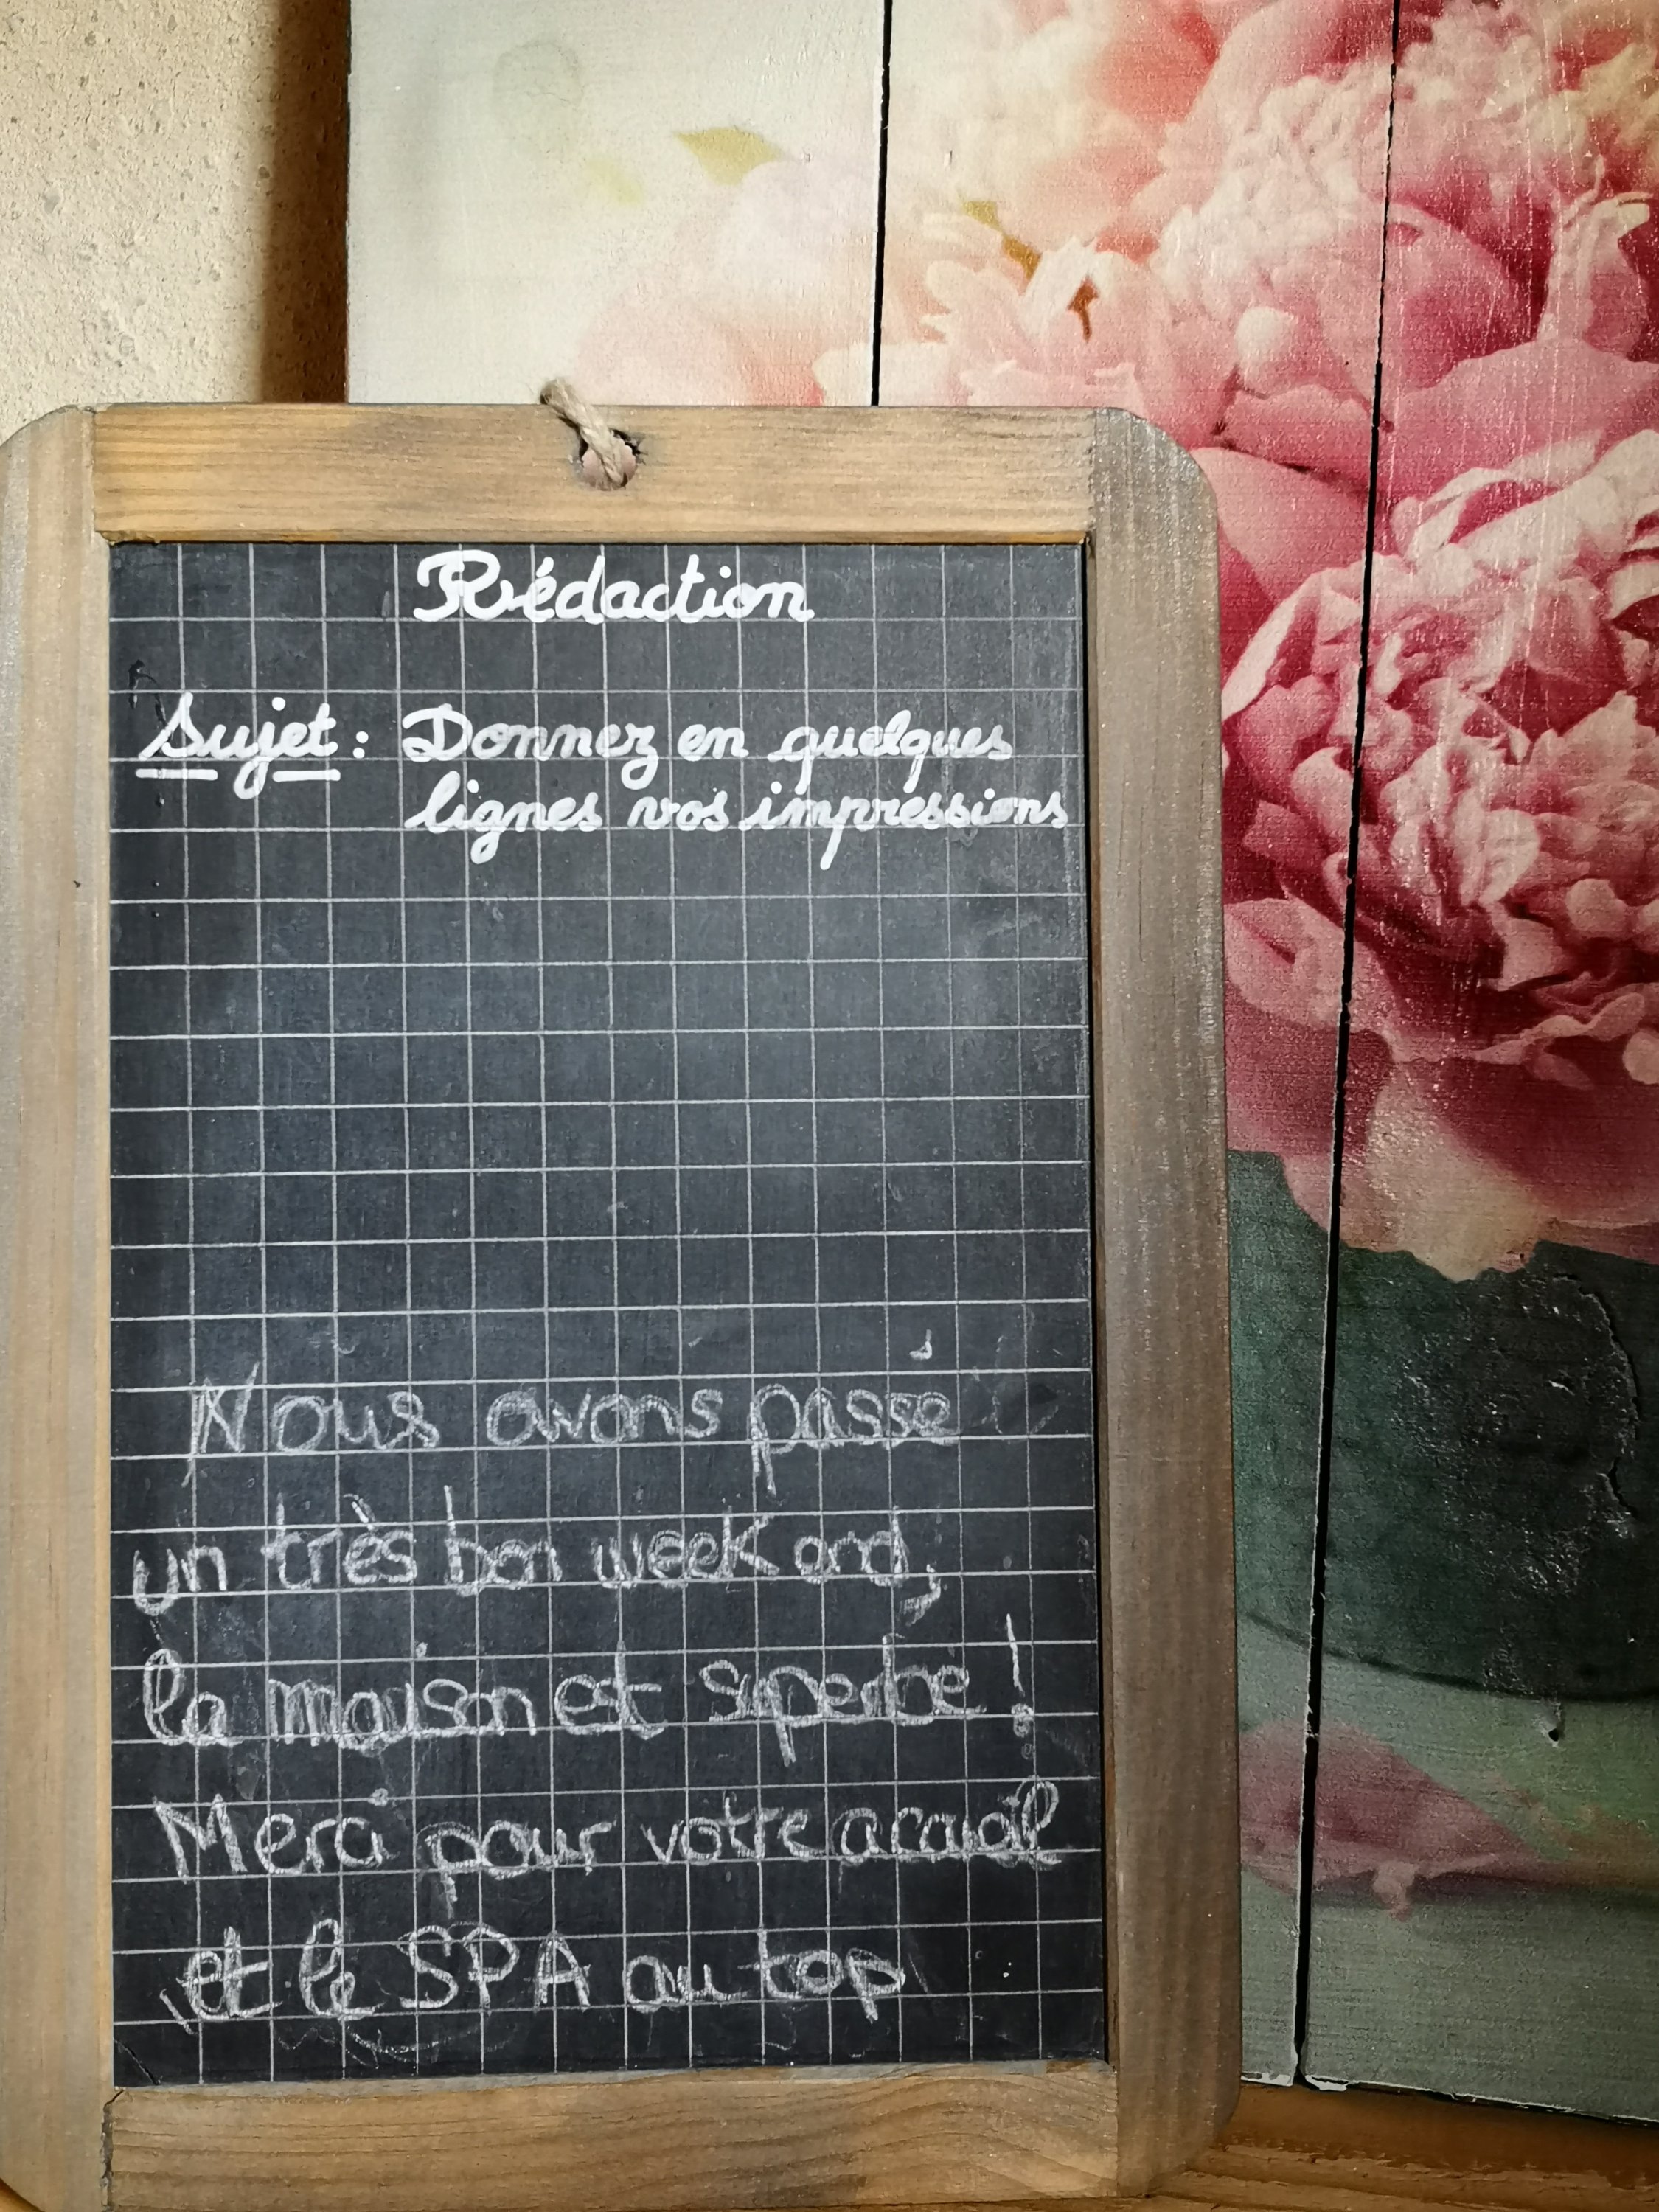 Rédaction
Sujet : Donnez en quelques
lignes vos impressions
Nous avons passé
un très bon week end,
la maison est superbe !
Merci pour votre accueil
et le SPA au top